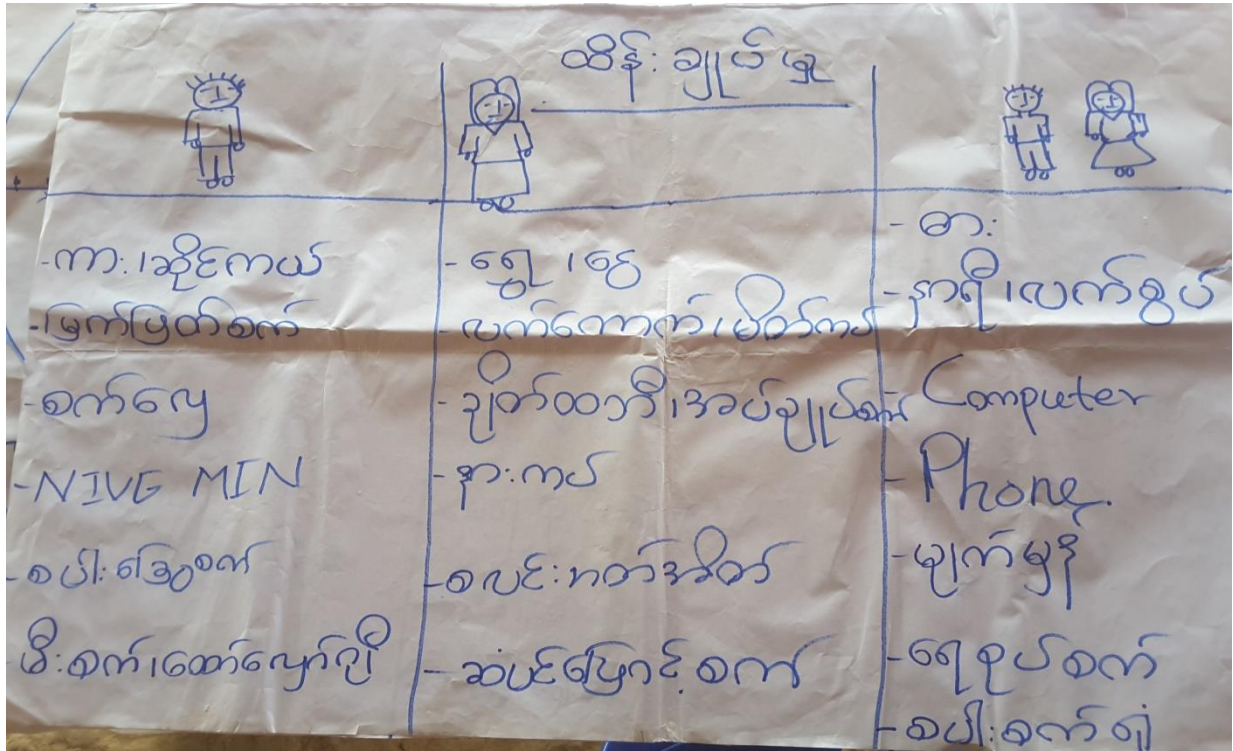 ထိန်းချုပ်မှု
-ကား၊ဆိုင်ကယ်
-မြက်ဖြတ်စက်
-စက်လှေ
-NIVG MIN
-စပါးခြွေစက်
မီးစက်၊ထော်လျော်ဂျီ
-ရွှေ၊ငွေ
-လက်ကောက်၊မိတ်ကပ်
-ချိတ်ထဘီ၊အပ်ချုပ်စက်
-နားကပ်
-စလင်းဘတ်အိတ်
-ဆံပင်ဖြောင့်စက်
-ဓား
-နာရီ၊လက်စွပ်
-Computer
-Phone
-မျက်မှန်
-ရေစုပ်စက်
-စပါးစက်ရုံ